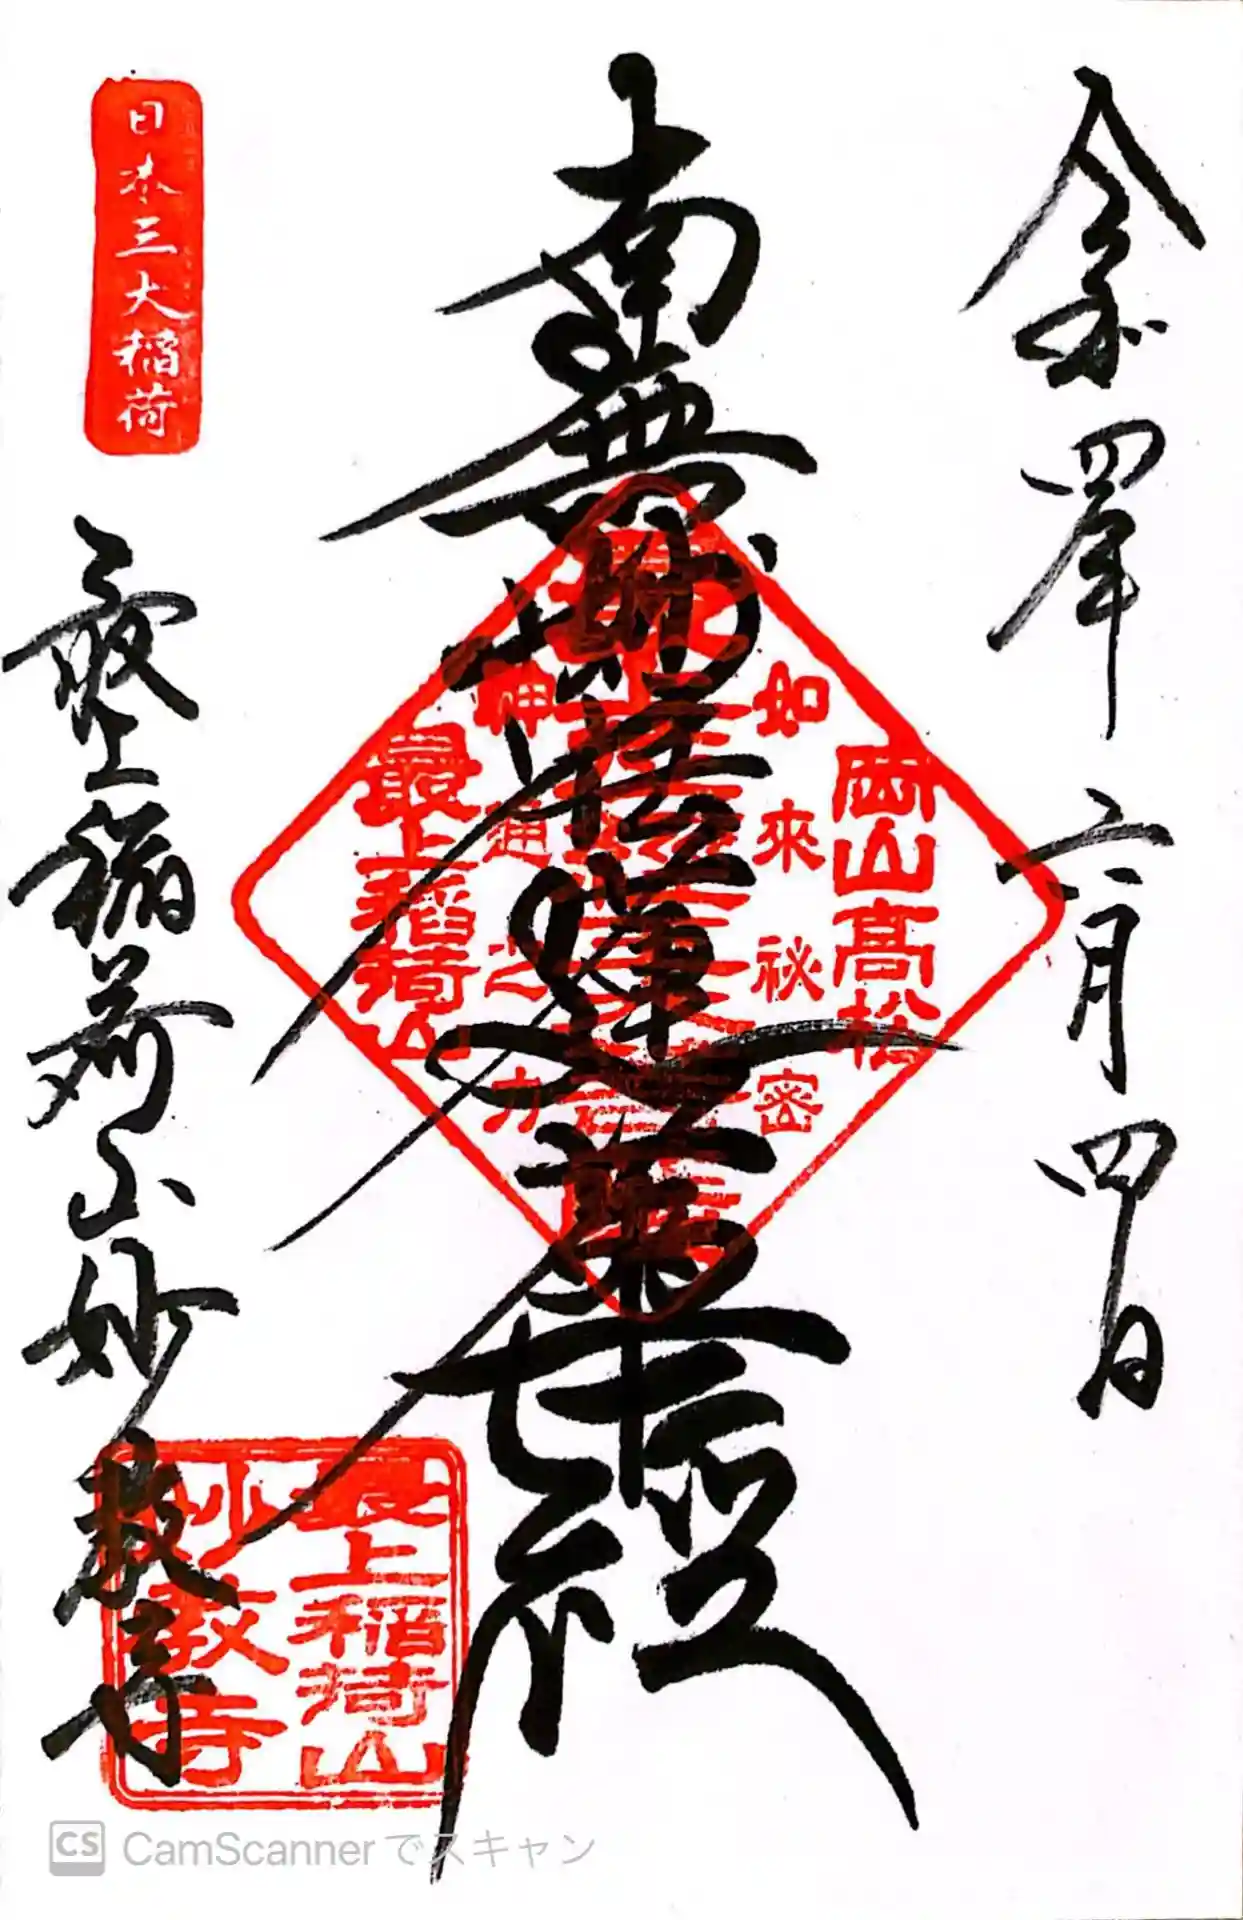 令和四年 六月 四日
南無妙法蓮華経
日本三大稲荷
最上稲荷山妙教寺
岡山高松
如來祕密
神通之力
最上稲荷山
最上稲荷山
妙教寺
CS CamScannerでスキャン